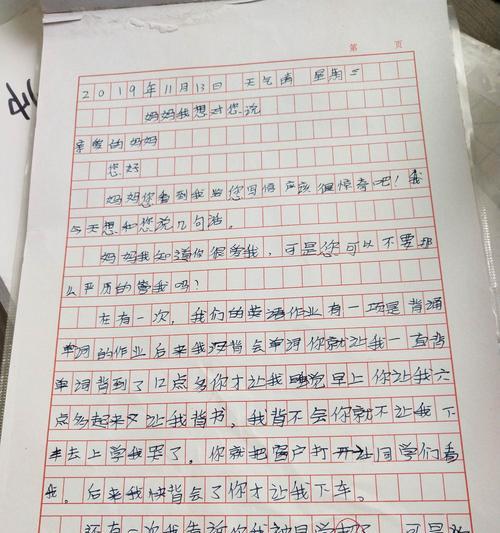 第 页
2019年11月13日 天气晴 星期三
妈妈我想对您说
亲爱的妈妈
您好
妈妈你看到我给您写信应该很惊奇吧！我
今天想和您说几句话。
妈妈我知道你很爱我，可是您可以不要那
么严历的管我吗？
在有一次，我们的英语作业有一项是背诵
单词的作业后来我没背会单词你就让我一直背
单词背到了12点多你才让我睡觉早上你让我六
点多起来又让我背书，我背不会你就不让我下
车去上学我哭了。你就把窗户打开让同学们看
我。后来我快背会了你才让我下车。
还有一次我告诉你我被同学 了，可是你